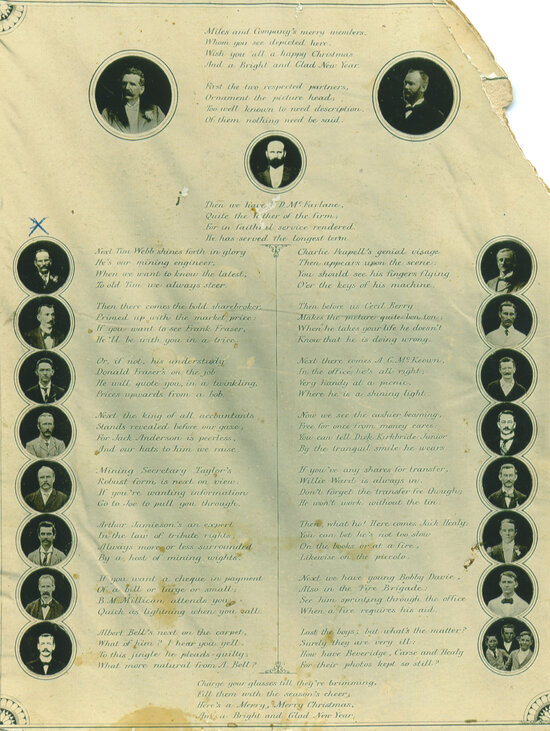 Miles and Company's merry members,
Whom you see depicted here,
Wish you all a happy Christmas
And a Bright and Glad New Year.
First the two respected partners,
Ornament the picture head,
Too well known to need description,
Of them nothing need be said.
Then we have D. McFarlane,
Quite the father of the firm,
For in faithful service rendered
He has served the longest term.
X
Next Tim Webb shines forth in glory
He's our mining engineer,
When we want to know the latest,
To old Tim we always steer.
Then there comes the bold sharebroker,
Primed up with the market price;
If you want to see Frank Fraser,
He'll be with you in a trice.
Or, if not, his understudy
Donald Fraser's on the job
He will quote you, in a twinkling,
Prices upwards from a bob.
Next the king of all accountants
Stands revealed before our gaze,
For Jack Anderson is peerless,
And our hats to him we raise.
Mining Secretary Taylor's
Robust form is next on view.
If you're wanting information
Go to Joe to pull you through.
Arthur Jamieson's an expert
In the law of tribute rights,
Always more or less surrounded
By a host of mining wights.
If you want a cheque in payment
Of a bill or large or small;
B. M. Millican attends you,
Quick as lightning when you call.
Albert Bell's next on the carpet,
What of him? I hear you yell,
To this jingle he pleads guilty;
What more natural from A. Bell?
Charlie Peapell's genial visage
Then appears upon the scene;
You should see his fingers flying
O'er the keys of his machine.
Then before us Cecil Berry
Makes the picture quite bon ton;
When he takes your life he doesn't
Know that he is doing wrong.
Next there comes A. G. McKeown,
In the office he's all right;
Very handy at a picnic,
Where he is a shining light.
Now we see the cashier beaming,
Free for once from money cares
You can tell Dick Kirkbride Junior
By the tranquil smile he wears
If you've any shares for transfer,
Willie Ward is always in;
Don't forget the transfer fee though;
He won't work without the tin.
Then, what ho! Here comes Jack Healy;
You can bet he's not too slow
On the books or at a fire,
Likewise on the piccolo.
Next we have young Bobby Davie,
Also in the Fire Brigade,
See him sprinting through the office
When a Fire requires his aid.
Last the boys; but what's the matter?
Surely they are very ill;
How have Beveridge, Carse and Healy
For their photos kept so still?
Charge your glasses till they're brimming,
Fill them with the season's cheer,
Here's a Merry, Merry Christmas,
And a Bright and Glad New Year,